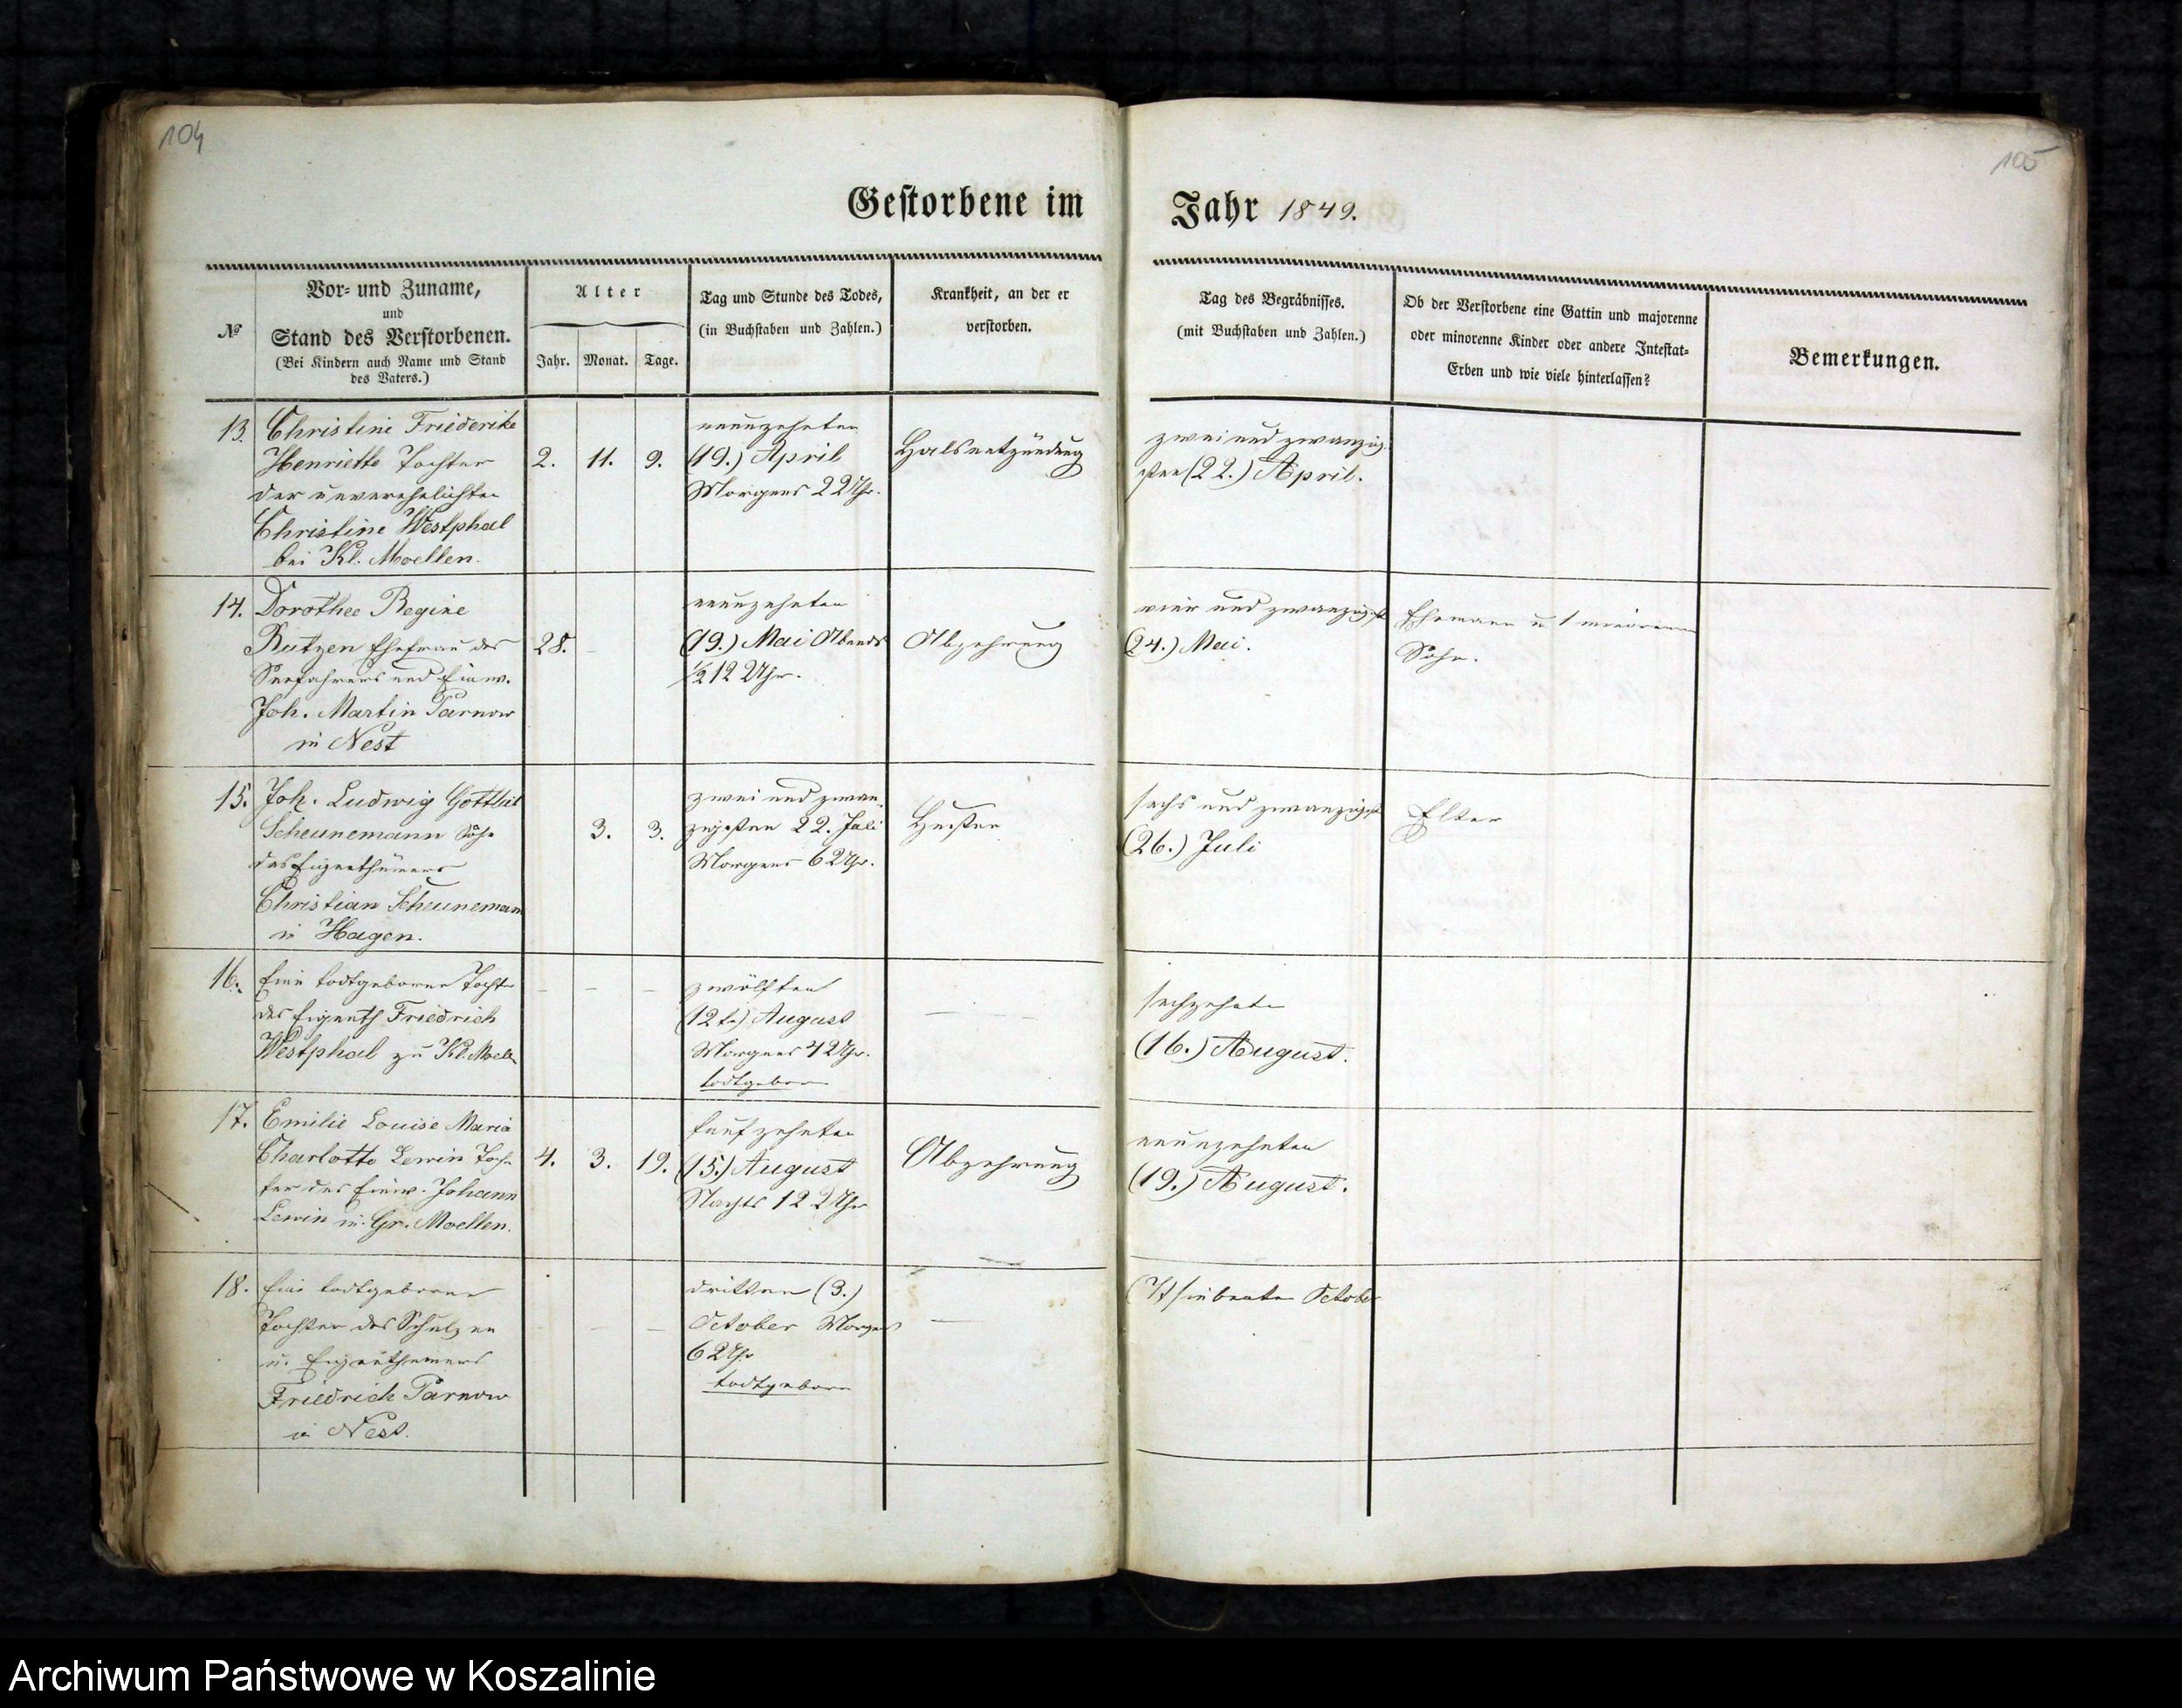 104
105
Gestorbene im
Jahr 1849.
№
Vor- und Zuname,
und
Stand des Verstorbenen.
(Bei Kindern auch Name und Stand
des Vaters.)
Alter
Jahr. Monat. Tage.
Tag und Stunde des Todes,
(in Buchstaben und Zahlen.)
Krankheit, an der er
verstorben.
Tag des Begräbnisses.
(mit Buchstaben und Zahlen.)
Ob der Verstorbene eine Gattin und majorenne
oder minorenne Kinder oder andere Intestat-
Erben und wie viele hinterlassen?
Bemerkungen.
13.
Christine Friederike
Henriette Tochter
der unverehelichten
Christine Westphal
bei Kl. Moellen.
2. 11. 9.
neunzehnten
(19.) April
Morgens 2 Uhr.
Halsentzündung
zwei und zwanzig-
sten (22.) April.
14.
Dorothee Regine
Rutzen Ehefrau des
Seefahrers und Einw.
Joh. Martin Parnow
in Nest
28.
neunzehnten
(19.) Mai Abends
½12 Uhr.
Abzehrung
vier und zwanzigst
(24.) Mai.
Ehemann u 1 minorenn
Sohn.
15.
Joh. Ludwig Gottlieb
Scheunemann Sohn
des Eigenthümers
Christian Scheunemann
in Hagen.
3. 3.
zwei und zwan-
zigsten 22. Juli
Morgens 6 Uhr.
Husten
sechs und zwanzigst
(26.) Juli
Elter
16.
Eine todtgeborene Tochter
des Eigenth Friedrich
Westphal zu Kl. Moelln
– – –
zwölften
(12t.) August
Morgens 4 Uhr.
todtgeboren
— —
sechzehnten
(16.) August.
17.
Emilie Louise Maria
Charlotte Lewin Toch-
ter des Einw. Johann
Lewin in Gr. Moellen.
4. 3. 19.
funfzehnten
(15.) August
Nachts 12 Uhr
Abzehrung
neunzehnten
(19.) August.
18.
Eine todtgeborene
Tochter des Schulzen
u. Eigenthümers
Friedrich Parnow
in Nest.
– – –
dritten (3.)
October Morgens
6 Uhr
todtgeboren
—
(7) siebenten October
Archiwum Państwowe w Koszalinie